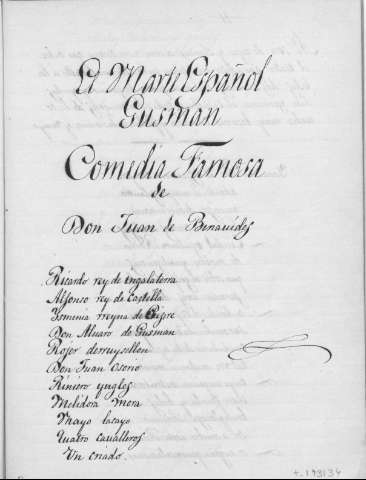 El Marte Español
Gusman
Comedia Famosa
de
Don Juan de Benauides
Ricardo rey de ingalaterra
Alfonso rey de Castilla
Ismenia rreyna de Chipre
Don Aluaro de Gusman
Rojer derruysellon
Don Juan Osorio
Riniero yngles
Melidora mora
Mayo lacayo
Quatro caualleros
Un criado.